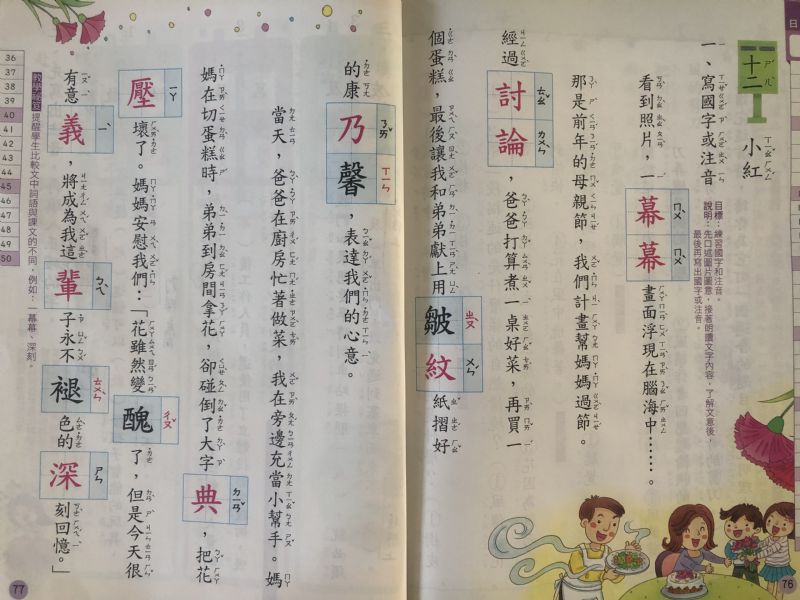 日
十二
小紅
一、寫國字或注音
目標:練習國字和注音。
說明:先口述圖片圖意,接著朗讀文字內容,了解文意後,
最後再寫出國字或注音。
看到照片,一幕ㄇㄨˋ幕ㄇㄨˋ畫面浮現在腦海中……。
那是前年的母親節,我們計畫幫媽媽過節。
經過討ㄊㄠˇ論ㄌㄨㄣˋ,爸爸打算煮一桌好菜,再買一
個蛋糕,最後讓我和弟弟獻上用皺ㄓㄡˋ紋ㄨㄣˊ紙摺好
的康乃ㄋㄞˇ馨ㄒㄧㄣ,表達我們的心意。
當天,爸爸在廚房忙著做菜,我在旁邊充當小幫手。媽
媽在切蛋糕時,弟弟到房間拿花,卻碰倒了大字典ㄉㄧㄢˇ,把花
壓ㄧㄚ壞了。媽媽安慰我們:「花雖然變醜ㄔㄡˇ了,但是今天很
有意義ㄧˋ,將成為我這輩ㄅㄟˋ子永不褪ㄊㄨㄣˋ色的深ㄕㄣ刻回憶。」
提醒學生比較文中詞語與課文的不同,例如:一幕幕、深刻。
36
37
38
39
40
41
42
43
44
45
46
47
48
49
50
76
77